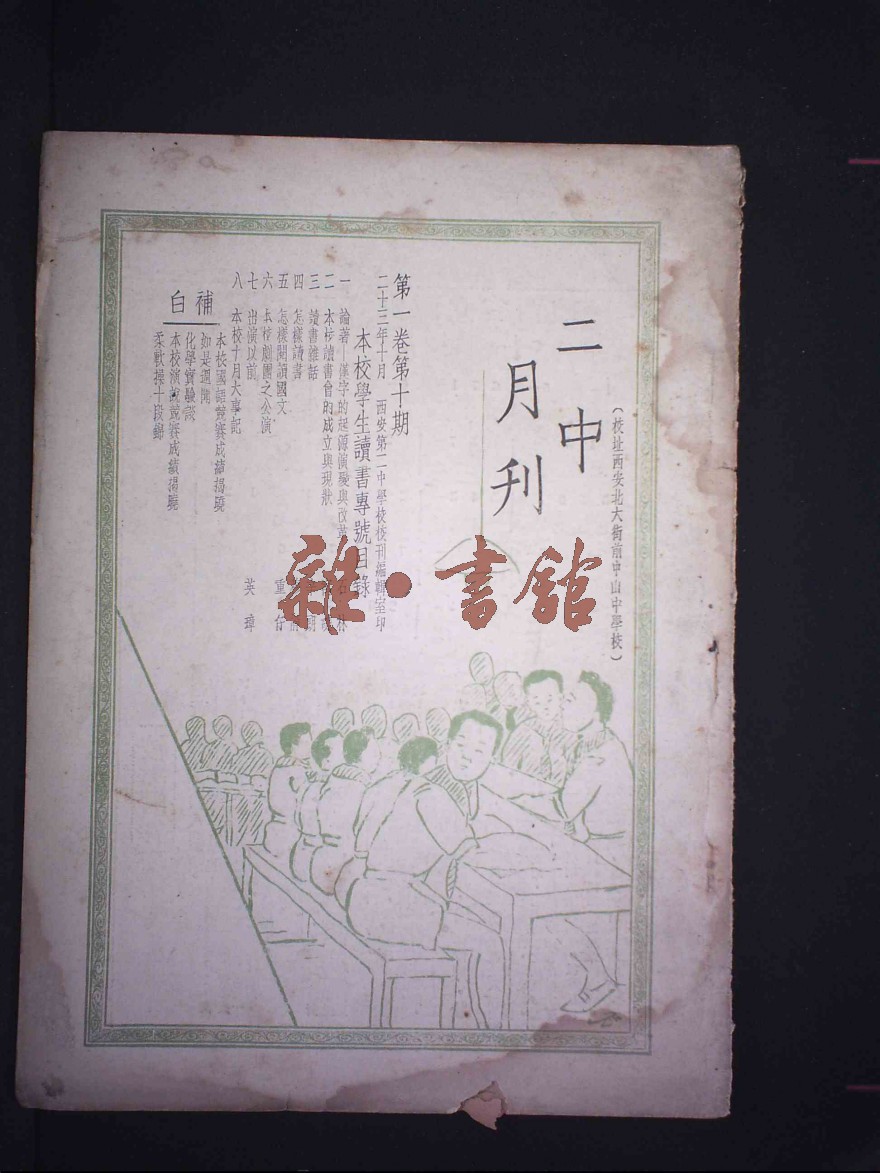 二中月刊
(校址西安北大街前中山中學校)
第一卷第十期
二十三年十月 西安第二中學校校刊編輯室印
本校學生讀書專號目錄
一 論著—漢字的起源演變與改革 石林
二 本校讀書會的成立與現狀
三 讀書雜話
四 怎樣讀書
五 怎樣閱讀國文 重行
六 本校劇團之公演
七 出演以前 英璋
八 本校十月大事記
補白
本校國語競賽成績揭曉
如是週閒
化學實驗談
本校演說競賽成績揭曉
柔軟操十段錦
雜·書館